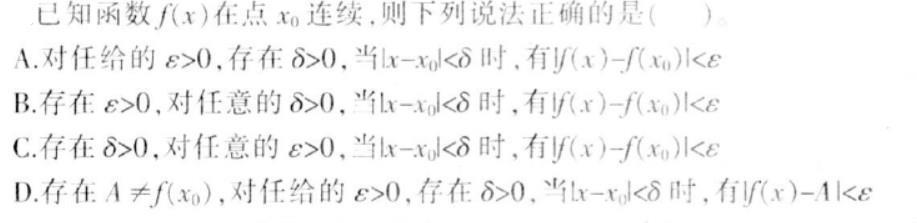 已知函数f(x)在点 x₀ 连续,则下列说法正确的是(  )。
A.对任给的 ε>0,存在 δ>0,当|x-x₀|<δ 时,有|f(x)-f(x₀)|<ε
B.存在 ε>0,对任意的 δ>0,当|x-x₀|<δ 时,有|f(x)-f(x₀)|<ε
C.存在 δ>0,对任意的 ε>0,当|x-x₀|<δ 时,有|f(x)-f(x₀)|<ε
D.存在 A≠f(x₀),对任给的 ε>0,存在 δ>0,当|x-x₀|<δ 时,有|f(x)-A|<ε